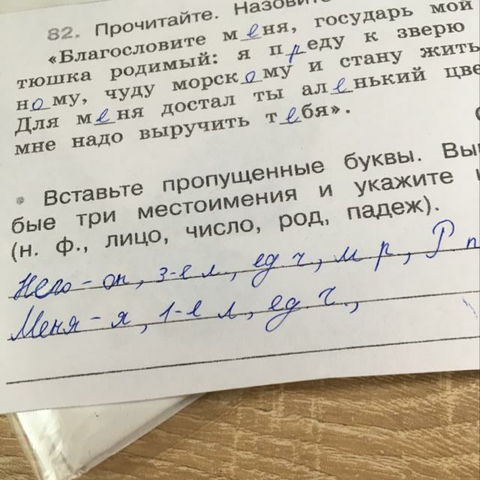 82. Прочитайте. Назовите
«Благословите меня, государь мой
тюшка родимый: я преду к зверю
ному, чуду морскому и стану жить
Для меня достал ты аленький цве
мне надо выручить тебя».
Вставьте пропущенные буквы. Вы
бые три местоимения и укажите
(н. ф., лицо, число, род, падеж).
Него – он, 3-е л, ед ч, м р, Р п
Меня – я, 1-е л, ед ч,